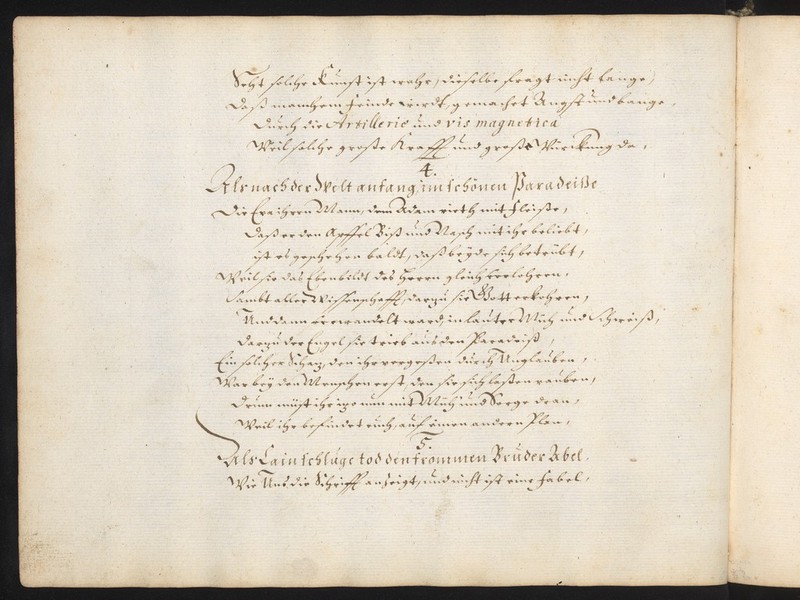 Seht solche Kunst ist wehr, dieselbe fragt nicht lange,
Daß manchem Feinde wirdt, gemachet Angst und bange,
Durch die Artillerie und vis magnetica
Weil solche große Krafft und große Würckung da,
4.
Als nach der Welt anfang, im schönen Paradeiße
Die Eva ihren Mann, dem Adam rieth mit fleiße,
Daß er den Apffel Biß und Nasch mit ihr beliebt,
ist es geschehen baldt, daß beyde sich betrübt,
Weil sie das Ebenbildt des Herren gleich verlohren,
Sambt aller Wissenschafft, darzu sie Gott erkohren,
Und dann verwandelt ward, in lauter Müh und Schweiß,
Darzu der Engel sie trieb aus dem Paradeiß,
Ein solcher Schatz, den ihr vergeßen durch Unglauben,
War bey den Menschen erst, den sie sich laßen rauben,
Drum müst ihr nun mit Müh und Sorge dran,
Weil ihr befindet euch, auf einen andern Plan,
5.
Als Cain schluge tod den frommen Bruder Abel,
Wie Uns die Schrifft anzeigt, und nicht ist eine fabel,